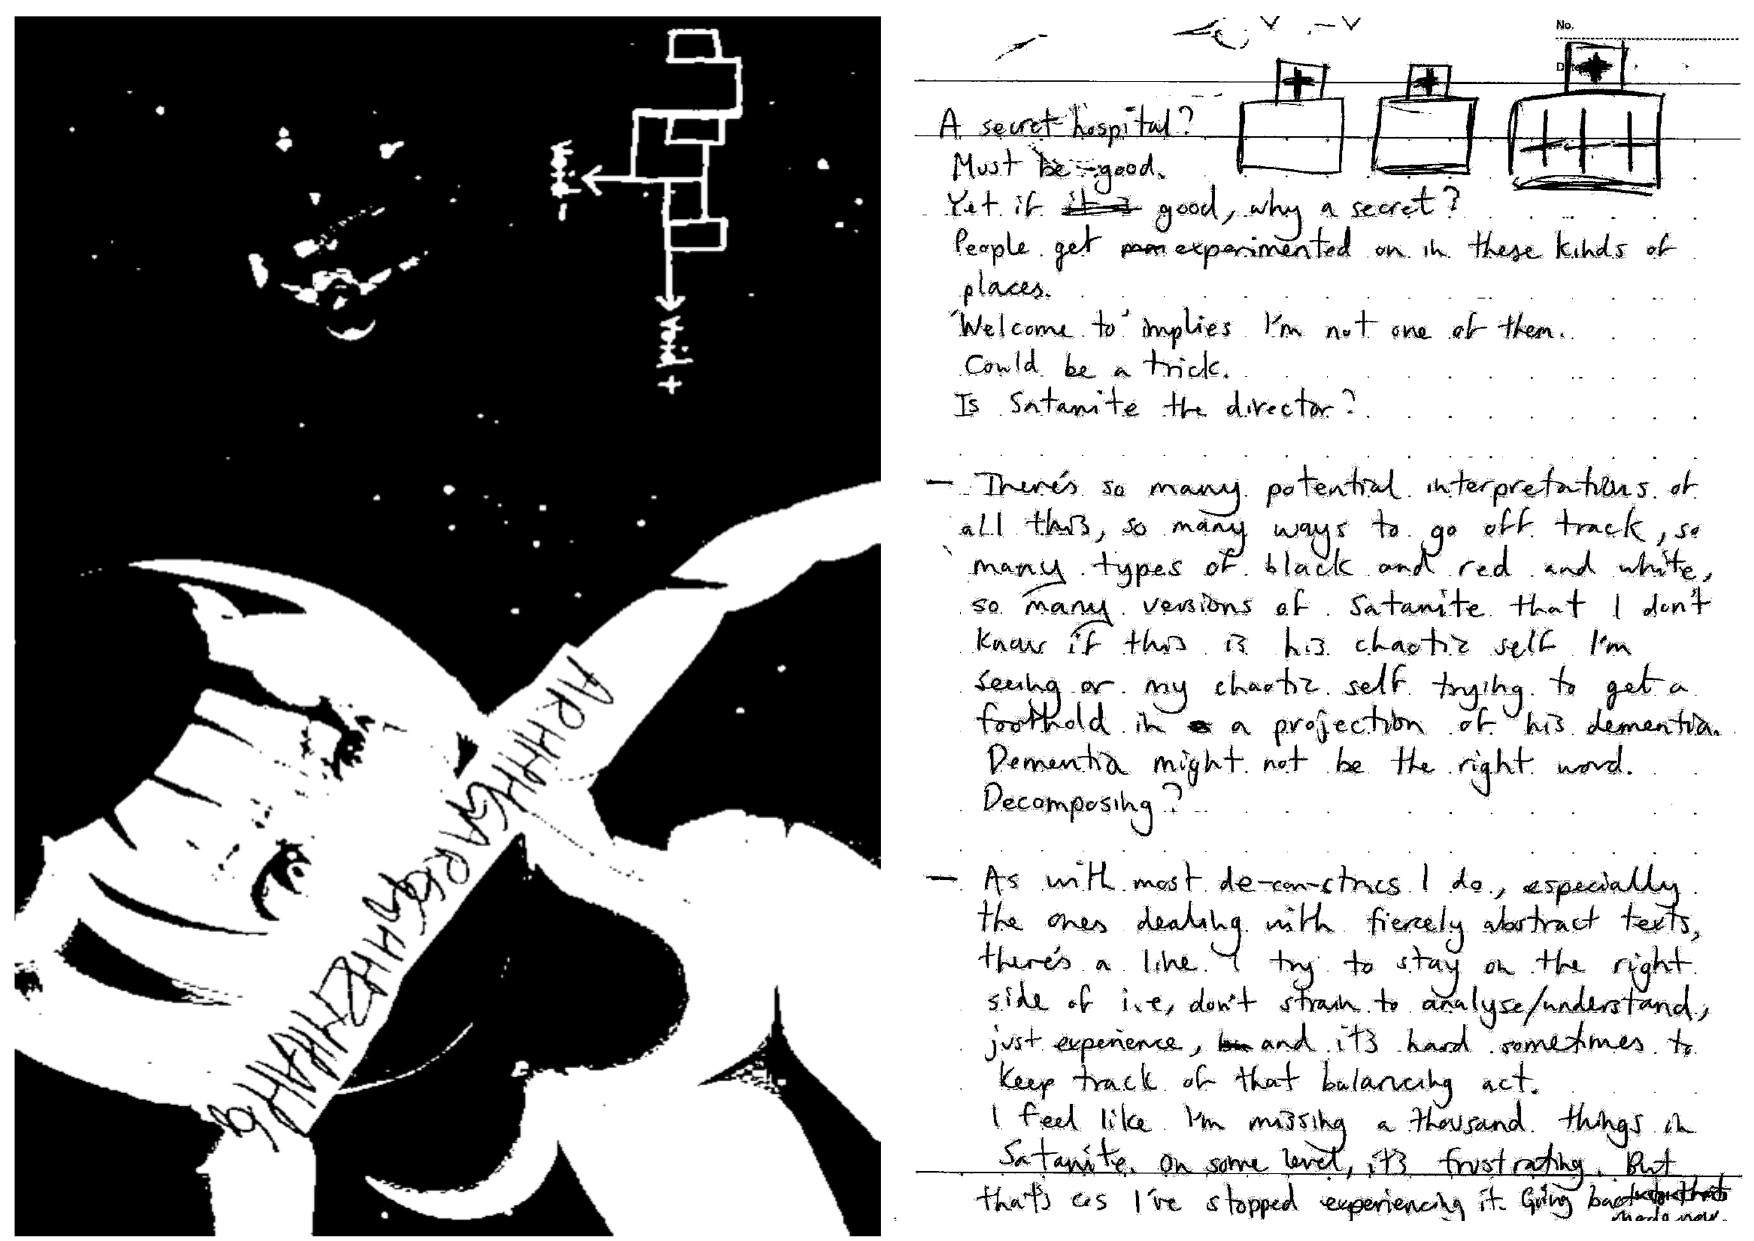 ARHHHGARGGHHRHHAHHG
No.
A secret hospital?
Must be good.
Yet if good, why a secret?
People get experimented on in these kinds of
places.
'Welcome to' implies I'm not one of them.
Could be a trick.
Is Satanite the director?
— There's so many potential interpretations of
all this, so many ways to go off track, so
many types of black and red and white,
so many versions of Satanite that I don't
know if this is his chaotic self I'm
seeing or my chaotic self trying to get a
foothold in a projection of his dementia.
Dementia might not be the right word.
Decomposing?
— As with most de-con-strucs I do, especially
the ones dealing with fiercely abstract texts,
there's a line I try to stay on the right
side of i.e, don't strain to analyse/understand,
just experience, and it's hard sometimes to
keep track of that balancing act.
I feel like I'm missing a thousand things in
Satanite. On some level, it's frustrating. But
that's cos I've stopped experiencing it. Going back
mode now.